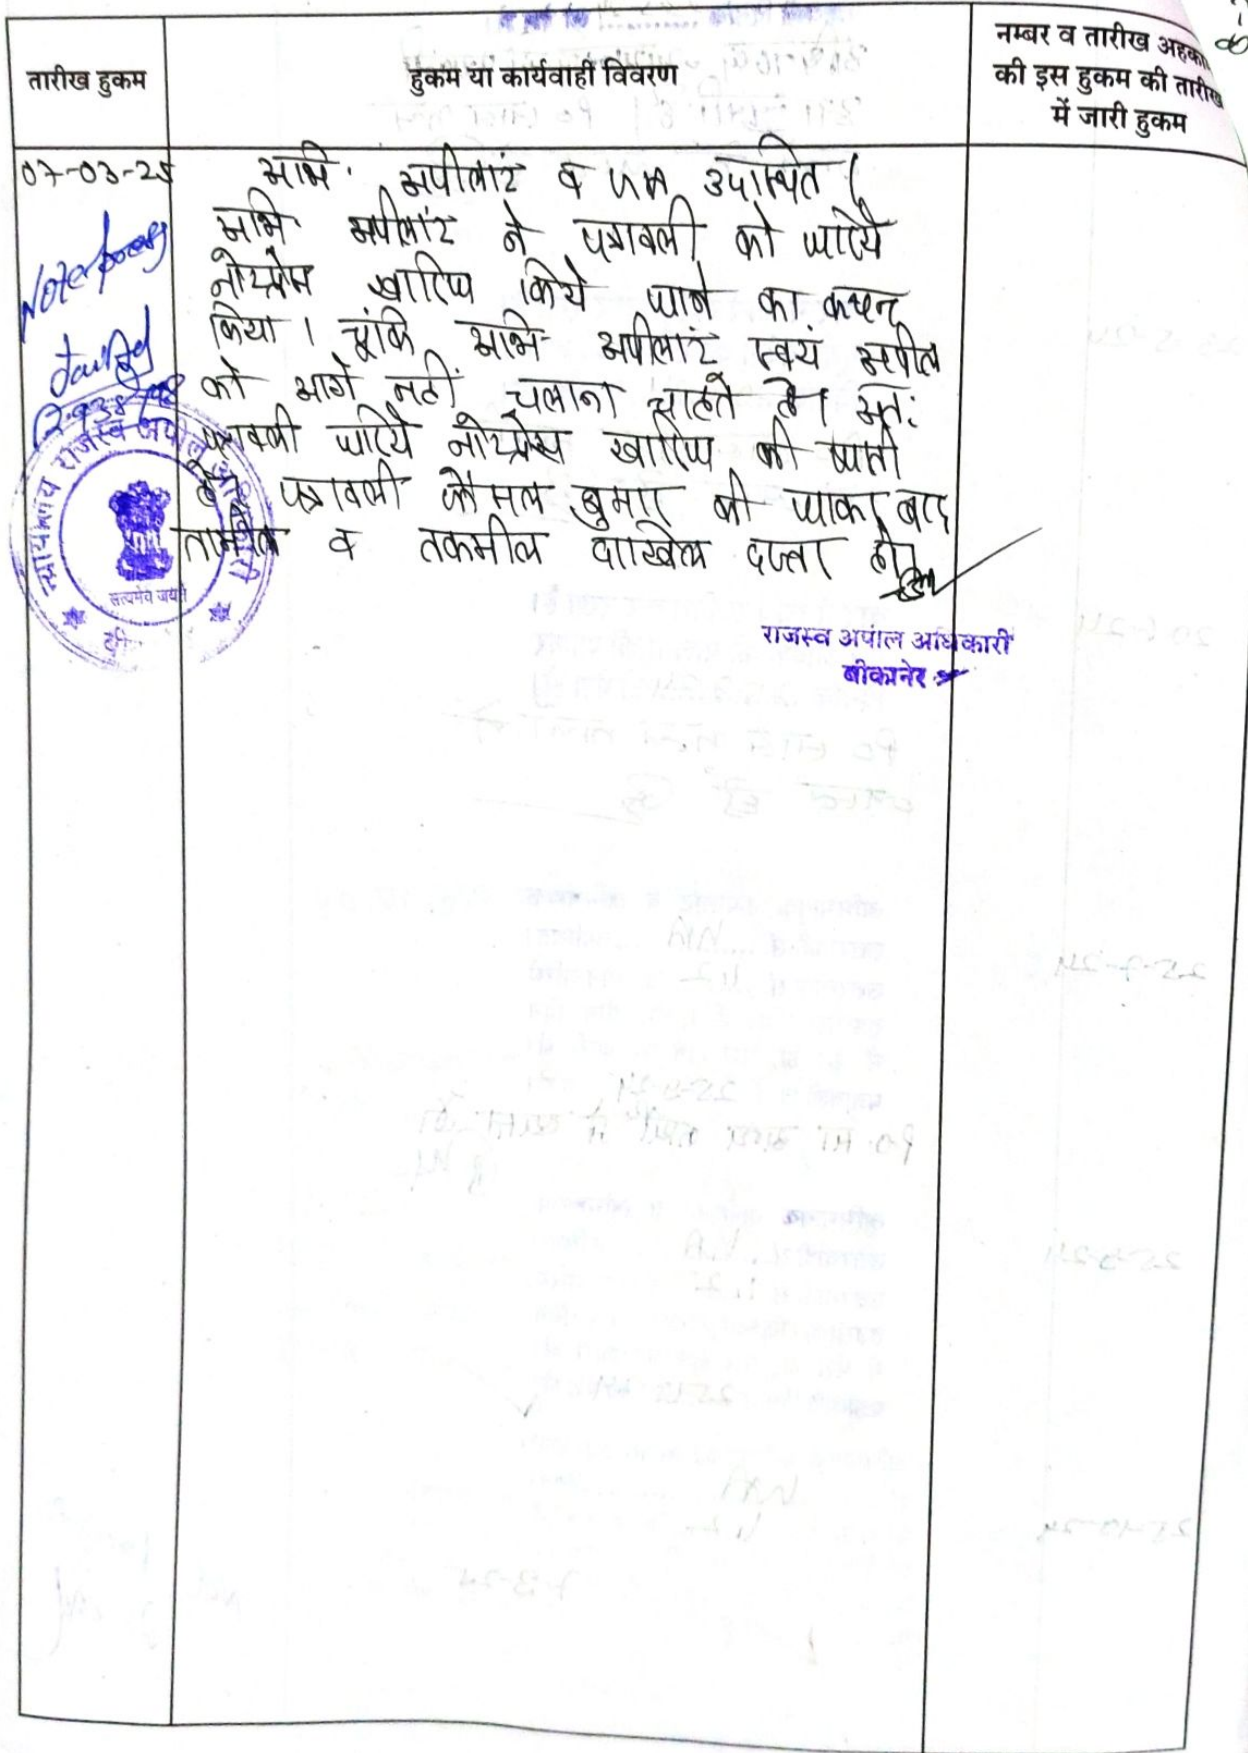 तारीख हुकम
हुकम या कार्यवाही विवरण
नम्बर व तारीख अहका
की इस हुकम की तारीख
में जारी हुकम
07-03-25
अभि. अपीलांट व उपस्थित।
अभि. अपीलांट ने पत्रावली को जरिये
नोटप्रेस खारिज किये जाने का कथन
किया। चूंकि अभि. अपीलांट स्वयं अपील
को आगे नहीं चलाना चाहते है। अत:
पत्रावली जरिये नोटप्रेस खारिज की जाती
है। पत्रावली फैसल शुमार की जाकर बाद
तामील व तकमील दाखिल दफ्तर होवे
Not press
राजस्व अपील अधिकारी
बीकानेर
न्यायालय राजस्व अपील अधिकारी
सत्यमेव जयते